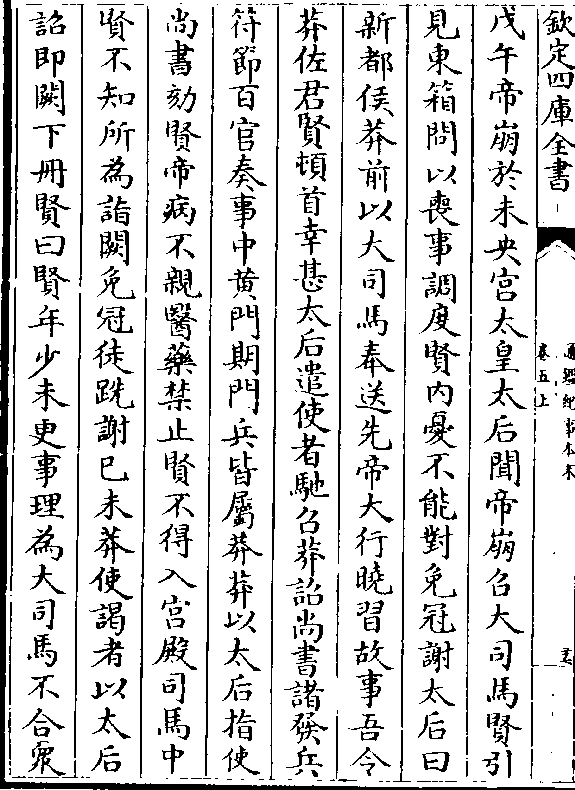 欽定四庫全書
通鑑紀事本末
卷五上
戊午帝崩於未央宫太皇太后聞帝崩召大司馬賢引
見東箱問以喪事調度賢内憂不能對免冠謝太后曰
新都侯莽前以大司馬奉送先帝大行曉習故事吾令
莽佐君賢頓首幸甚太后遣使者馳召莽詔尚書諸發兵
符節百官奏事中黄門期門兵皆屬莽莽以太后指使
尚書劾賢帝病不親醫藥禁止賢不得入宫殿司馬中
賢不知所為詣闕免冠徒跣謝巳未莽使謁者以太后
詔即闕下册賢曰賢年少未更事理為大司馬不合衆